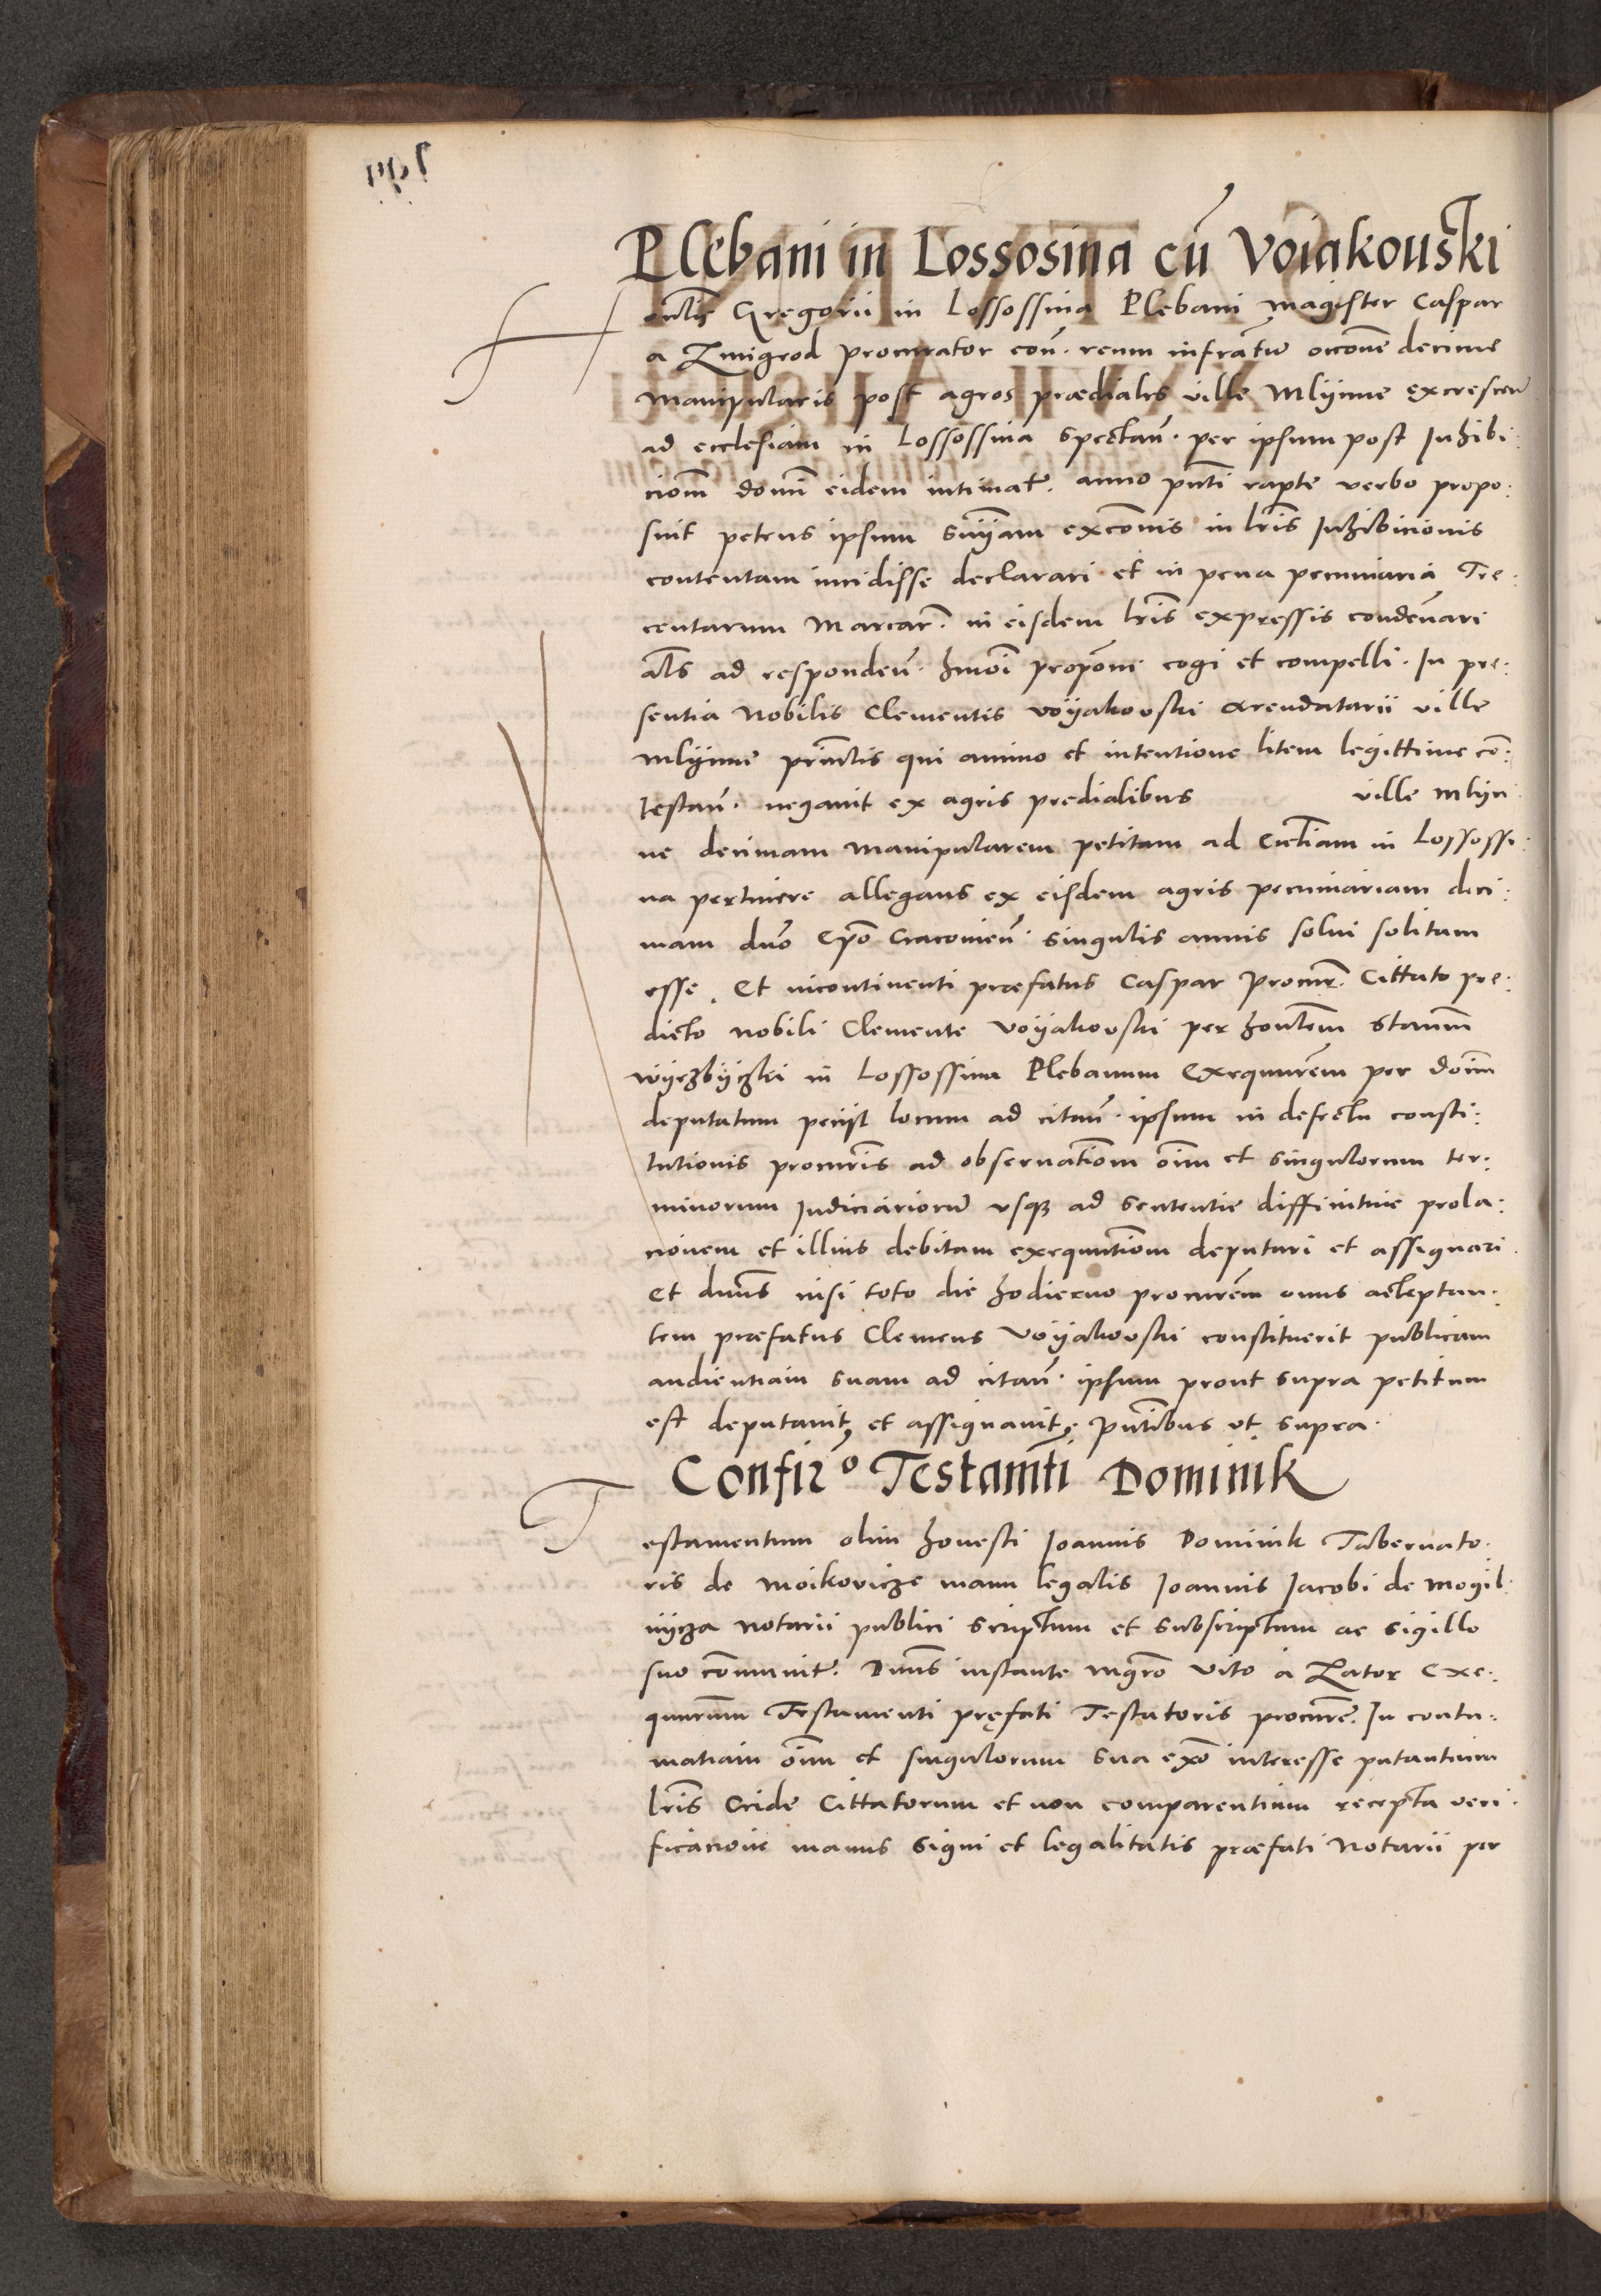 Plebani in Lossosina cū Voiakouski
Honlis Gregorii in Lossossina Plebani magister Caspar
a Zmigrod procurator coñ. reum infrātū occōne decime
manipularis post agros prædiales ville Mlynne excrescen̄
ad ecclesiam in Lossossina spectañ. per ipsum post Inhibi:
ciom̄ domī eidem intimat̄. anno pn̄ti rapte verbo propo:
suit petens ipsum sn̄yam excōnis in lr̄is Inhibicionis
contentam incidisse declarari et in pena pecuniaria Tre:
centarum Marcar̄. in eisdem lr̄is expressis condēnari
al̄s ad respondeñ. hmōi propōni cogi et compelli. In pre:
sentia Nobilis Clementis Voyakovski Arendatarii ville
Mlynne princ̄lis qui animo et intentione litem legittime cō:
testañ. negavit ex agris predialibus ville Mlyn:
ne decimam manipularem petitam ad Ecc̄liam in Lossossi:
na pertinere allegans ex eisdem agris pecuniariam deci:
mam dn̄o Ep̄o Cracovieñ. singulis annis solui solitam
esse. Et incontinenti præfatus Caspar Procur̄. Cittato pre:
dicto nobili Clemente Voyakovski per honl̄em Stanm̄
Wyerzbyczki in Lossossina Plebanum Exequutorēm per dom̄
deputatum peciit locum ad citañ. ipsum in defectu consti:
tutionis procur̄is ad observatiōm oīm et singulorum ter:
minorum Judiciariorū usq3 ad sententie diffinitive prola:
cionem et illius debitam exequutiōm deputari et assignari.
Et dn̄us nisi toto die hodierno procur̄em onus acceptan:
tem præfatus Clemens Voyakovski constituerit publicam
audientiam suam ad citañ. ipsum prout supra petitum
est deputavit et assignavit, pn̄tibus ut supra.
Confirº Testamn̄ti Dominik
Testamentum olim honesti Joannis Dominik Tabernato:
ris de Moikovicze manu legalis Joannis Jacobi de Mogil:
nycza Notarii publici scriptum et subscriptum ac sigillo
suo cōmunit̄. Dn̄us instante mgr̄o Vito a Zator Exe:
quutorum Testamenti pręfati Testatoris procure. In contu:
matiam oīm et singulorum sua exō interesse putantium
lr̄is Cride Cittatorum et non comparentium recepta veri:
ficacione manus signi et legalitatis præfati Notarii per